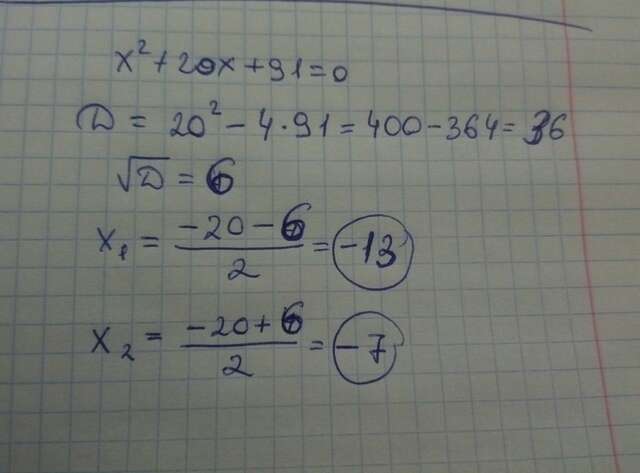 x² + 20x + 91 = 0
D = 20² − 4·91 = 400 − 364 = 36
√D = 6
x₁ = (−20 − 6)/2 = −13
x₂ = (−20 + 6)/2 = −7